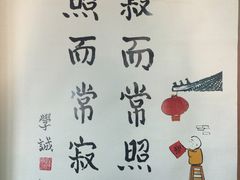 寂而常照
照而常寂
學誠